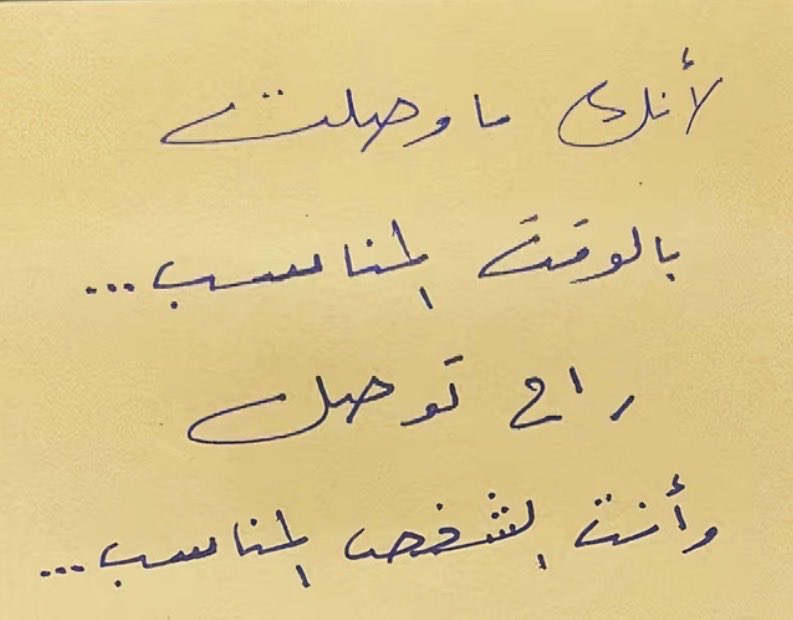 لأنك ما وصلت
بالوقت المناسب...
راح توصل
وأنت الشخص المناسب...